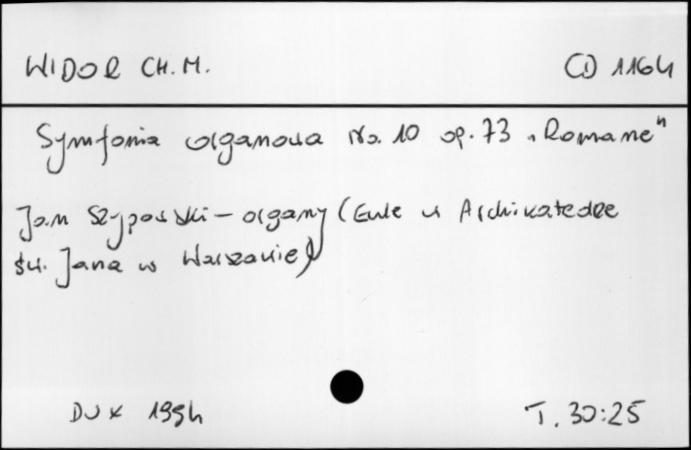 WIDOR CH. M. CD 1164
Symfonia organowa No. 10 op. 73 „Romane"
Jan Szypowski – organy (Eule w Archikatedrze
św. Jana w Warszawie)
DUX 1994 T. 30:25